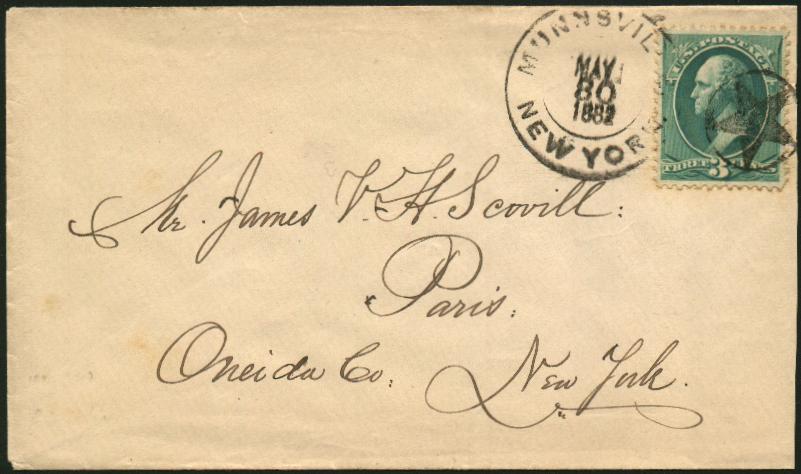 MUNNSVIL
MAY
30
1882
NEW YORK
U.S. POSTAGE
THREE 3 CENTS
Mr. James V. H. Scovill:
Paris.
Oneida Co. New York.